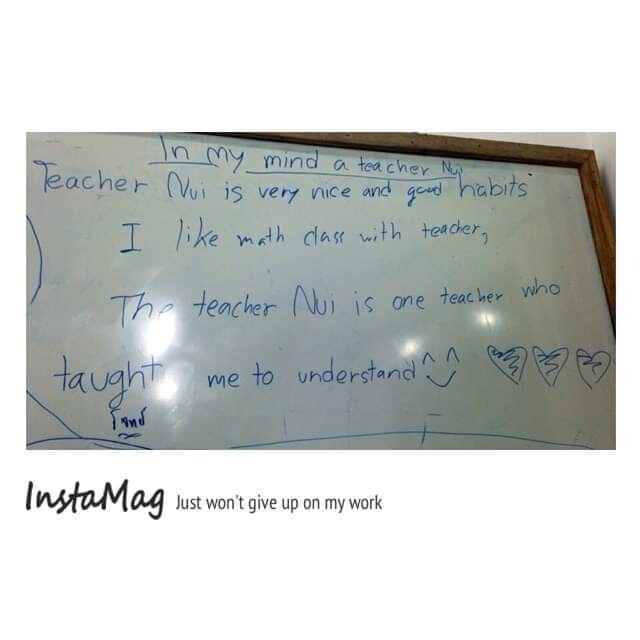 In my mind a teacher Nui
Teacher Nui is very nice and good habits
I like math class with teacher,
The teacher Nui is one teacher who
taught me to understand ^^
InstaMag Just won't give up on my work